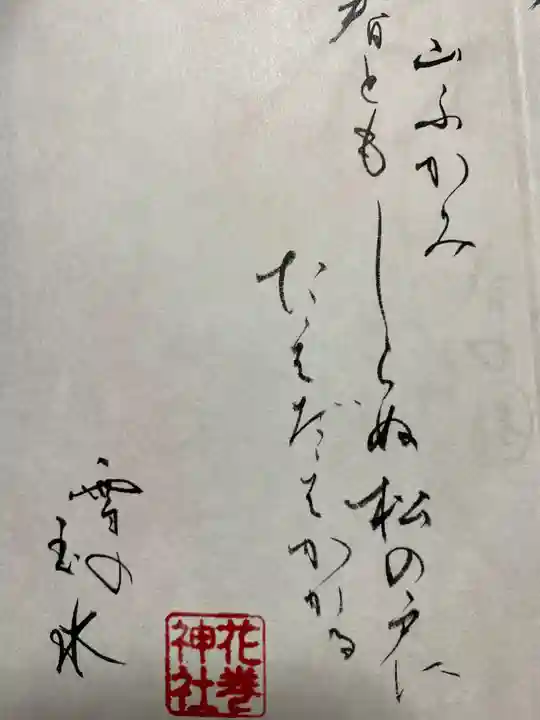 山ふかみ
春ともしらぬ松の戸に
たえだえかかる
雪の
玉水
花巻
神社